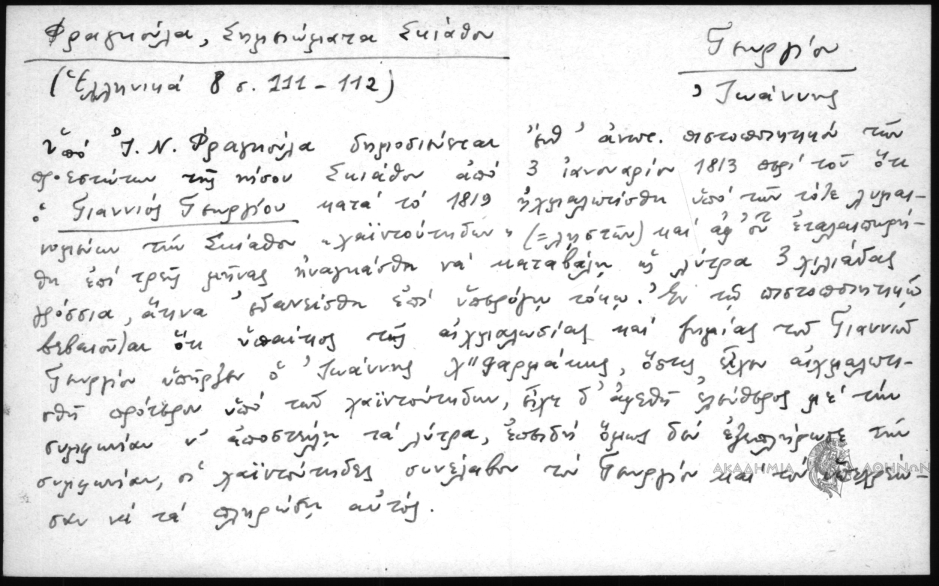 Φραγκούλα, Σημειώματα Σκιάθου
Γεωργίου
(Ἑλληνικά 8 σ. 111-112)
Ἰωάννης
Ὑπό Ἰ. Ν. Φραγκούλα δημοσιεύεται ἔνθ' ἀνωτ. πιστοποιητικόν τῶν
προεστώτων τῆς νήσου Σκιάθου ἀπό 3 ἰανουαρίου 1813 περί τοῦ ὅτι
ὁ Γιαννιός Γεωργίου κατά τό 1819 ᾐχμαλωτίσθη ὑπό τῶν τότε λυμαι-
νομένων τήν Σκιάθον "χαϊντούτηδων" (=λῃστῶν) καί ἀφ' οὗ ἐταλαιπωρή-
θη ἐπί τρεῖς μῆνας ἠναγκάσθη νά καταβάλῃ ὡς λύτρα 3 χιλιάδας
γρόσσια, ἅτινα ἐδανείσθη ἐπί ὑπερόγκῳ τόκῳ. Ἐν τῷ πιστοποιητικῷ
βεβαιοῦται ὅτι ὑπαίτιος τῆς αἰχμαλωσίας καί ζημίας τοῦ Γιαννιοῦ
Γεωργίου ὑπῆρξεν ὁ Ἰωάννης χ" Φαρμάκης, ὅστις εἶχεν αἰχμαλωτι-
σθῆ πρότερον ὑπό τῶν χαϊντούτηδων, εἶχε δ' ἀφεθῆ ἐλεύθερος μέ τήν
συμφωνίαν ν' ἀποστείλῃ τά λύτρα, ἐπειδή ὅμως δέν ἐξεπλήρωσε τήν
συμφωνίαν, οἱ χαϊντούτηδες συνέλαβον τόν Γεωργίου καί τόν ὑπεχρέω-
σαν νά τά πληρώσῃ αὐτός.
ΑΚΑΔΗΜΙΑ ΑΘΗΝΩΝ